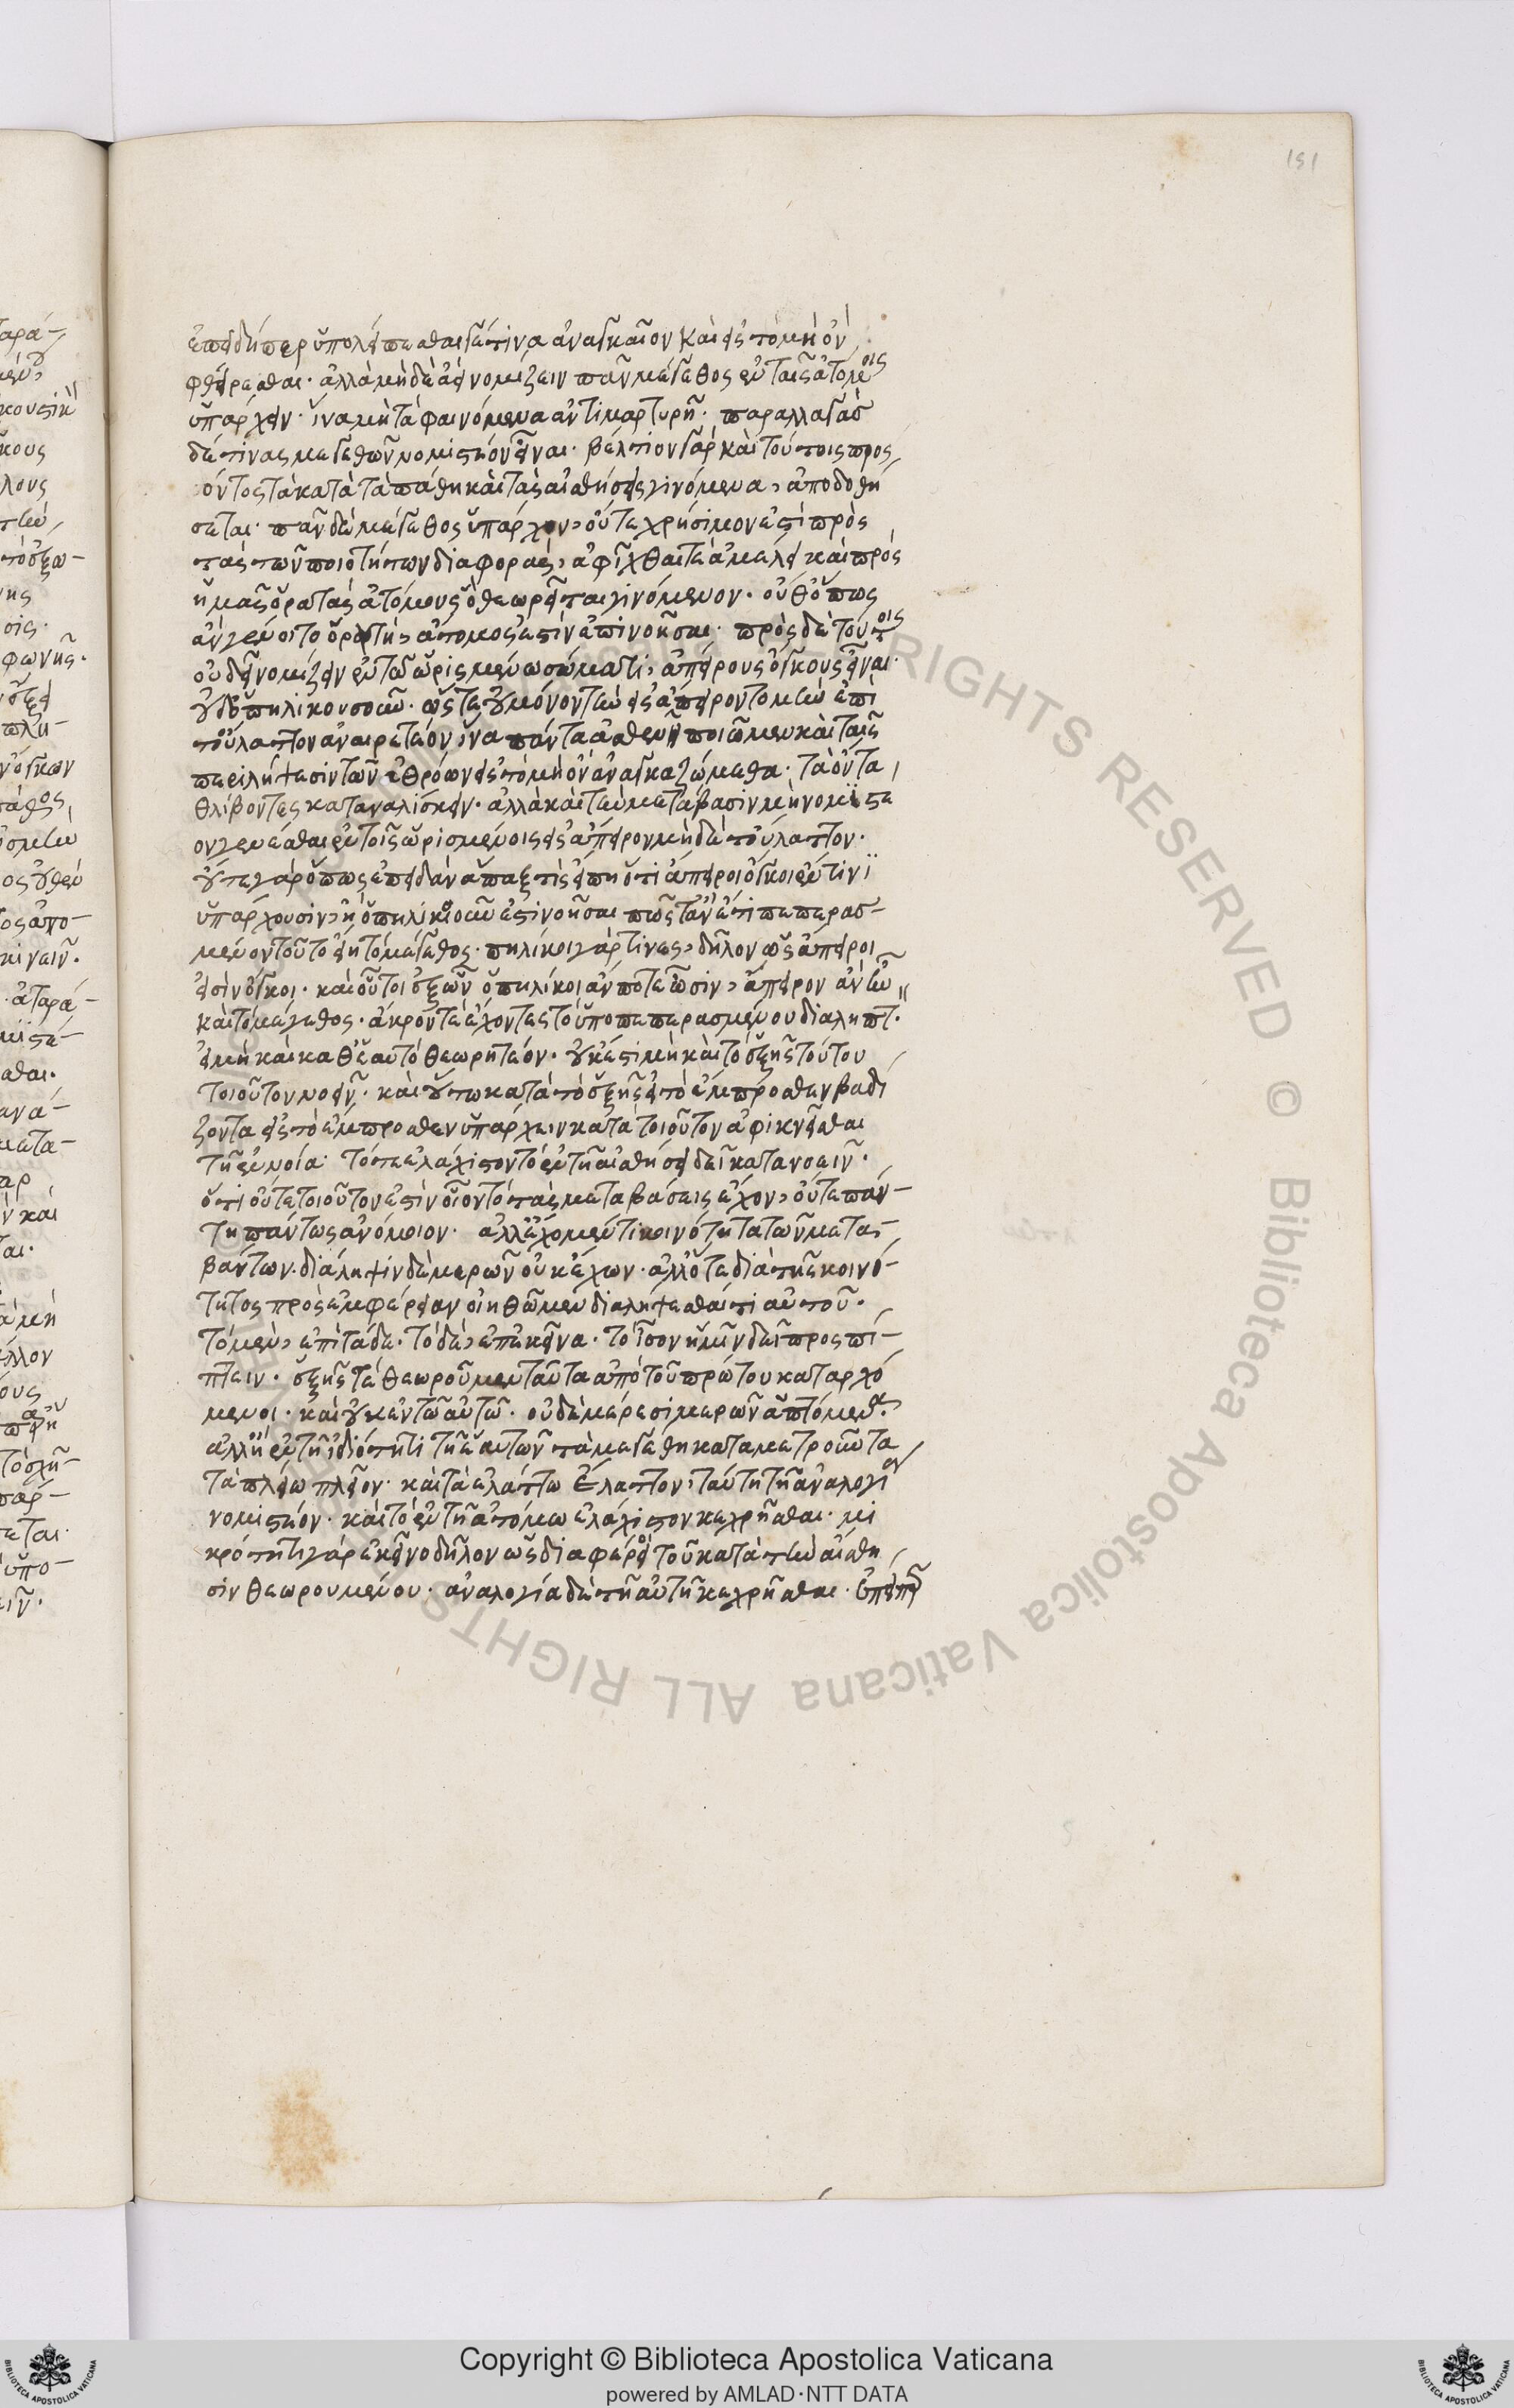 151
ἐπειδήπερ ὑπολείπεσθαι γέ τινα ἀναγκαῖον καὶ εἰς τὸ μὴ ὂν
φθείρεσθαι. ἀλλὰ μὴ δὲ ἀεὶ νομίζειν πᾶν μέγεθος ἐν ταῖς ἀτόμοις
ὑπάρχειν. ἵνα μὴ τὰ φαινόμενα ἀντιμαρτυρῇ. παραλλαγὰς
δέ τινας μεγεθῶν νομιστέον εἶναι. βέλτιον γὰρ καὶ τούτοις προς
όντος τὰ κατὰ τὰ πάθη καὶ τὰς αἰσθήσεις γινόμενα, ἀποδοθή
σεται. πᾶν δὲ μέγεθος ὑπάρχον, οὔτε χρήσιμον ἐστὶ πρὸς
τὰς τῶν ποιοτήτων διαφοράς, ἀφῖχθαί τε ἀμέλει καὶ πρὸς
ἡμᾶς ὁρατὰς ἀτόμους ὃ θεωρεῖται γινόμενον. οὐθ' ὅπως
ἂν γένοιτο ὁρατὴ, ἄτομος ἐστὶν ἐπινοῆσαι. πρὸς δὲ τούτοις
οὐ δεῖ νομίζειν ἐν τῷ ὡρισμένω σώματι, ἀπείρους ὄγκους εἶναι.
οὐδ' ὁπηλίκους οὖν. ὥστε οὐ μόνον τὴν εἰς ἄπειρον τομὴν ἐπὶ
τοὔλαττον ἀναιρετέον ἵνα πάντα ἀσθενῆ ποιῶμεν καὶ ταῖς
περιλήψεσι τῶν ἀθρόων εἰς τὸ μὴ ὂν ἀναγκαζώμεθα. τὰ ὄντα
θλίβοντες καταναλίσκειν. ἀλλὰ καὶ τὴν μετάβασιν μὴ νομιστέ
ον γενέσθαι ἐν τοῖς ὡρισμένοις εἰς ἄπειρον μὴ δὲ τοὔλαττον.
οὔτε γὰρ ὅπως ἐπειδὰν ἅπαξ τὶς εἴπη ὅτι ἄπειροι ὄγκοι ἔν τινι
ὑπάρχουσιν, ἢ ὁπηλίκοι οὖν ἐστὶ νοῆσαι πῶς τ' ἂν ἔτι πεπερασ-
μένον τοῦτο εἴη τὸ μέγεθος. πηλίκοι γάρ τινες, δῆλον ὡς ἄπειροι
εἰσὶν ὄγκοι. καὶ οὗτοι ἐξ ὧν ὁπηλίκοι ἄν ποτε ὦσιν, ἄπειρον ἂν ἦν
καὶ τὸ μέγεθος. ἄκρον τε ἔχοντες τοῦ πεπερασμένου διαληπτ.
εἰ μὴ καὶ καθ' ἑαυτὸ θεωρητέον. οὐκ ἔστι μὴ καὶ τὸ ἑξῆς τούτου
τοιοῦτον νοεῖν. καὶ οὕτω κατὰ τὸ ἑξῆς εἰς τὸ ἔμπροσθεν βαδί
ζοντα εἰς τὸ ἔμπροσθεν ὑπάρχειν κατὰ τοιοῦτον ἀφικνεῖσθαι
τῇ ἐννοία. τό τε ἐλάχιστον τὸ ἐν τῇ αἰσθήσει δεῖ κατανοεῖν.
ὅτι οὔτε τοιοῦτον ἐστὶν οἷον τὸ τὰς μεταβάσεις ἔχον, οὔτε πάν-
τη πάντως ἀνόμοιον. ἀλλ' ἔχομέν τι κοινότητα τῶν μετα-
βάντων. διάληψιν δὲ μερῶν οὐκ ἔχων. ἀλλ' ὅτε διὰ τῆς κοινό-
τητος προσεμφέρειαν οἰηθῶμεν διαλήψεσθαί τι αὐτοῦ.
τὸ μὲν, ἐπιτάδε. τὸ δὲ, ἐπέκεινα. τὸ ἴσον ἡμῖν δεῖ προσπί-
πτειν. ἑξῆς τε θεωροῦμεν ταῦτα ἀπὸ τοῦ πρώτου καταρχό
μενοι. καὶ οὐκ ἐν τῷ αὐτῷ. οὐδὲ μέρεσι μερῶν ἁπτόμενα.
ἀλλ' ἢ ἐν τῇ ἰδιότητι τῇ ἑαυτῶν τὰ μεγέθη καταμετροῦντα
τὰ πλείω πλεῖον. καὶ τὰ ἐλάττω ἔλαττον, ταύτη τῇ ἀναλογίαν
νομιστέον. καὶ τὸ ἐν τῇ ἀτόμω ἐλάχιστον κεχρῆσθαι. μι
κρότητι γὰρ ἐκεῖνο δῆλον ὡς διαφέρει τοῦ κατὰ τὴν αἴσθη
σιν θεωρουμένου. ἀναλογία δὲ τῇ αὐτῇ κέχρηται. ἐπεὶ περ
ALL RIGHTS RESERVED © Biblioteca Apostolica Vaticana
Copyright © Biblioteca Apostolica Vaticana
powered by AMLAD·NTT DATA